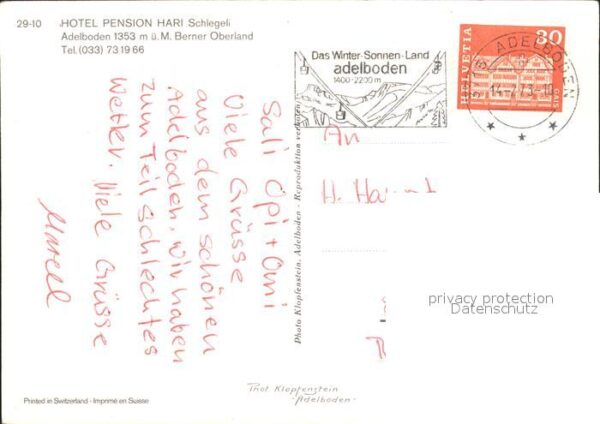 29-10 HOTEL PENSION HARI Schlegeli
Adelboden 1353 m ü.M. Berner Oberland
Tel. (033) 73 19 66
Das Winter-Sonnen-Land
adelboden
1400-2200 m
ADELBODEN
HELVETIA
30
Sali Opi + Omi
Viele Grüsse
aus dem schönen
Adelboden, wir haben
zum Teil schlechtes
Wetter. Viele Grüsse
Marcel
An
H.
Photo Klopfenstein, Adelboden - Reproduktion verboten
privacy protection
Datenschutz
Phot Klopfenstein
Adelboden
Printed in Switzerland - Imprimé en Suisse